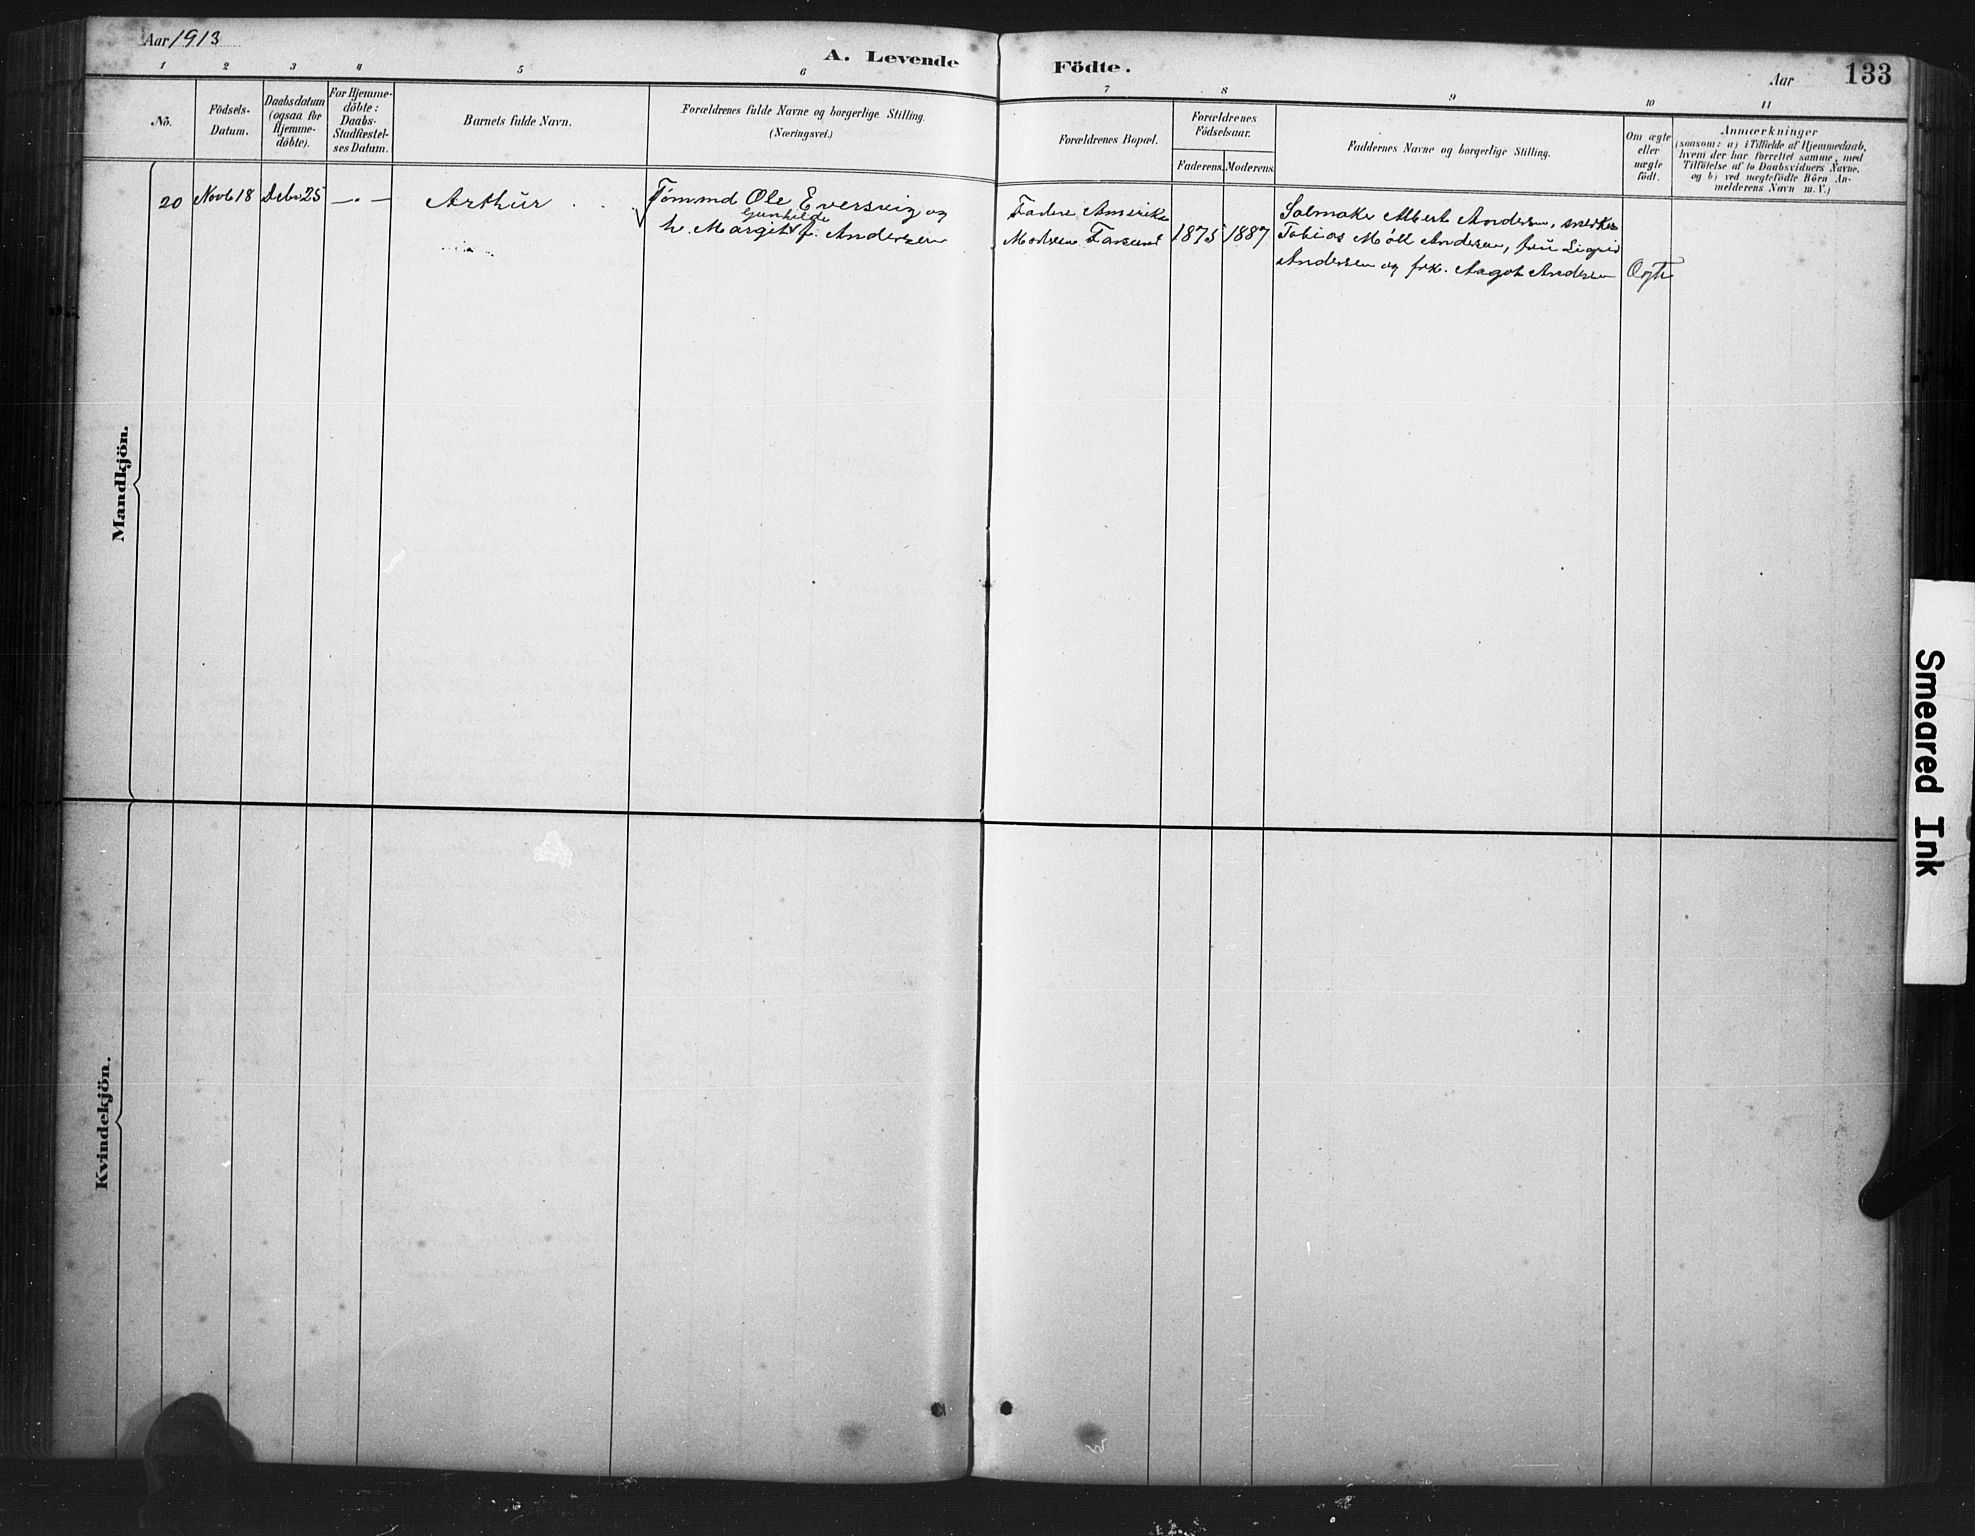 Aar 1913
A. Levende
Födte.
Aar
133
1 2 3 4 5 6 7 8 9 10 11
Nö.
Födsels-
Datum.
Daabsdatum
(ogsaa for
Hjemme-
döbte).
For Hjemme-
döbte:
Daabs-
Stadfæstel-
ses Datum.
Barnets fulde Navn.
Forældrenes fulde Navne og borgerlige Stilling.
(Næringsvei.)
Forældrenes Bopæl.
Forældrenes
Födselsaar.
Faderens. Moderens.
Faddernes Navne og borgerlige Stilling.
Om ægte
eller
uægte
födt.
Anmærkninger
(saasom: a) i Tilfælde af Hjemmedaab,
hvem der har forrettet samme, med
Tilföielse af to Daabsvidners Navne.
og b) ved uægtefödte Börn An-
melderens Navn m. V.)
Mandkjön.
20
Novb 18
Debr 25
—.—
Arthur
Tømmd Ole Eversvig og
Gunhilde
h. Margit f. Andersen
Faderen Amerika
Moderen Farsund
1875
1887
Salmaker Albert Andersen, snedker
Tobias Møll Andersen, frü Sigrid
Andersen og frk. Aagot Andersen
Ægte
Kvindekjön.
Smeared Ink